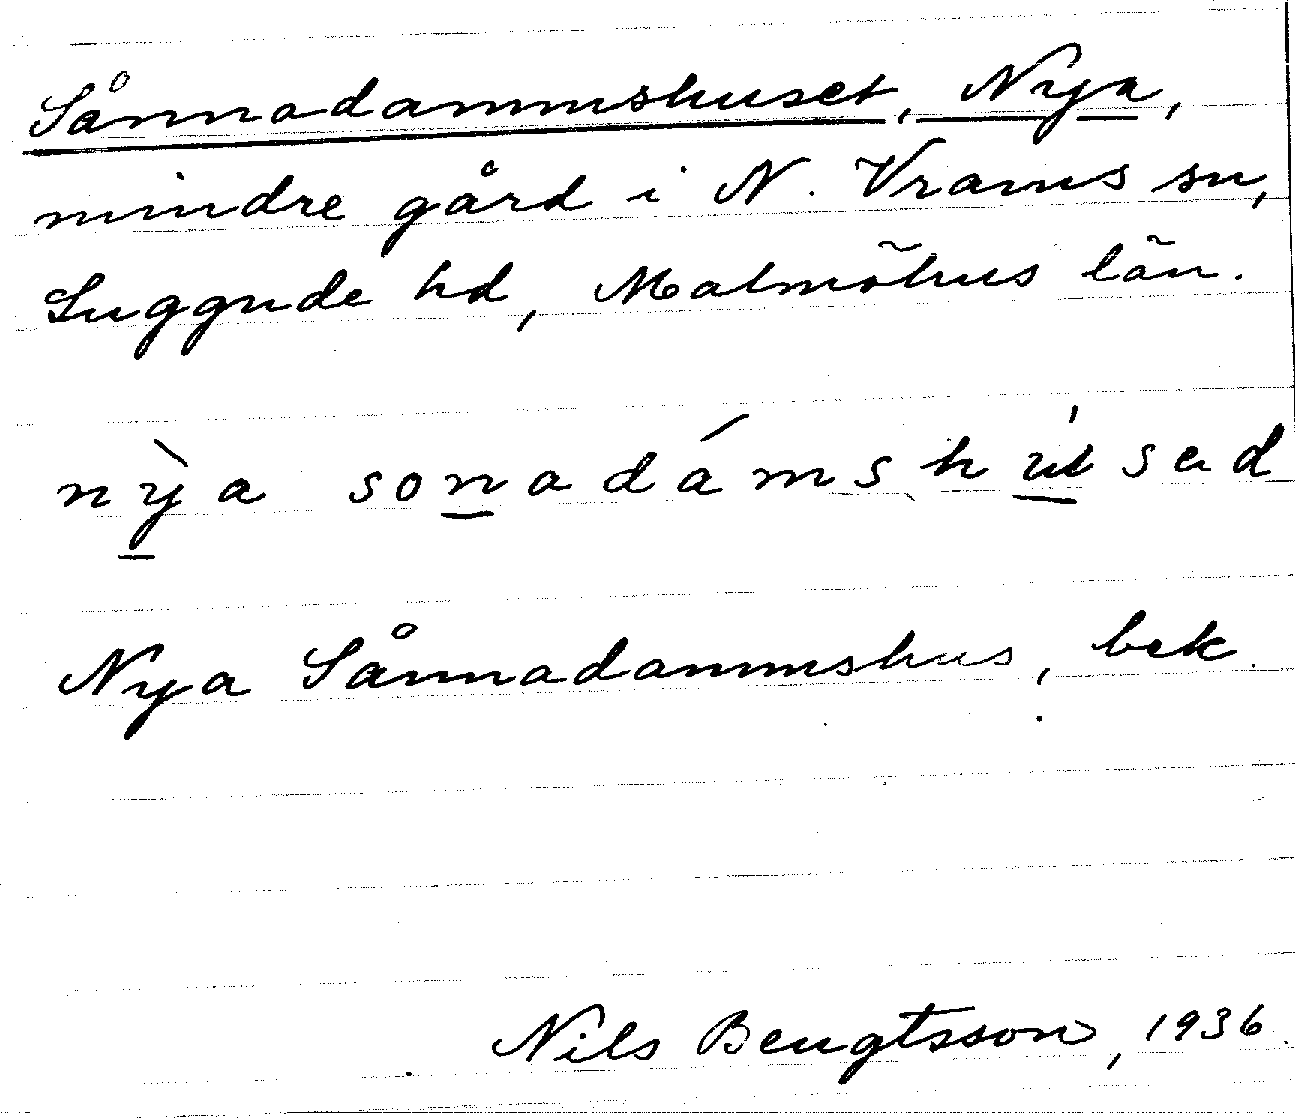 Sånnadammshuset, Nya,
mindre gård i N. Vrams sn,
Luggude hd, Malmöhus län.
nỳa sonadámshúsad
Nya Sånnadammshus, bek.
Nils Bengtsson, 1936.